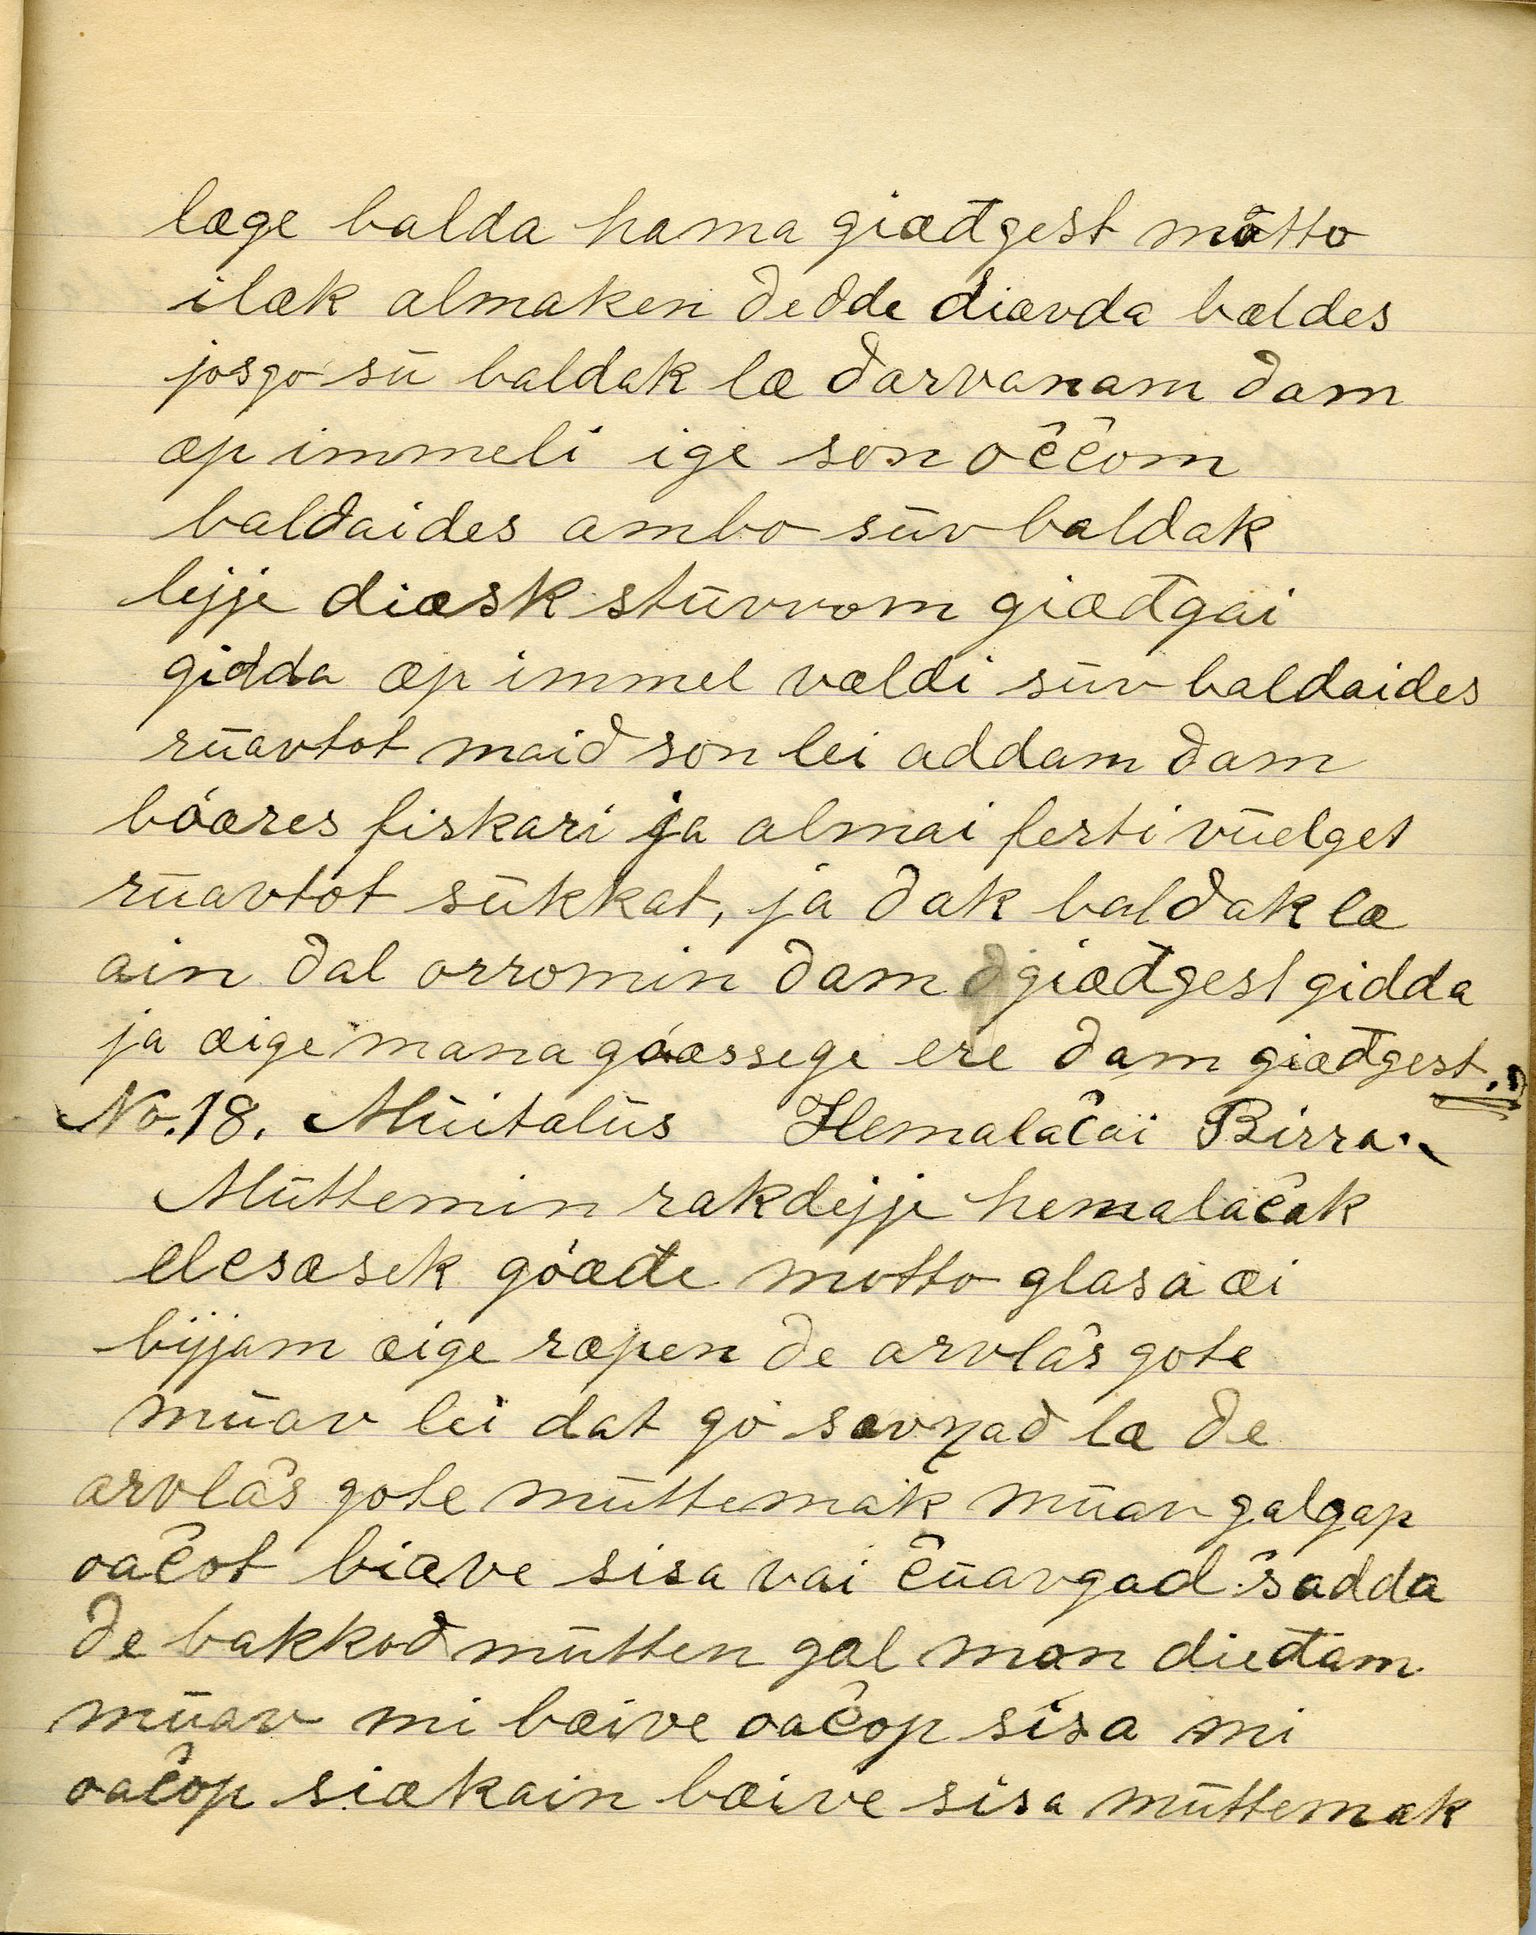 læge balda hama giæđgest motto
ilæk almaken dedde diævda bældes
josgo sü baldak læ darvanam dam
æp immeli ige son oččom
baldaides ambo süv baldak
lejje diæsk stürrom giæđgai
gidda æp immel vældi süv baldaides
rüavtot maid son lei addam dam
bóares fiskari ja almai ferti vüelget
rüavtot sükkat, ja dak baldak læ
ain dal orromin dam giæđgest gidda
ja æige mana góassege ere dam giæđgest.
No. 18. Müitalüs Hemalačai Birra.
Müttemin rakdejje hemalačak
elesæsek góæđe motto glasa æi
bijjam æige ræpen de arvlas gote
müav lei dat go sævŋad læ de
arvlas gote müttemak müav galgap
oačot biæve sisa vai čüavgad šadda
de bakkod mütten gal mon dieđam
müav mi bæive oačop sisa mi
oačop siækain bæive sisa müttemak